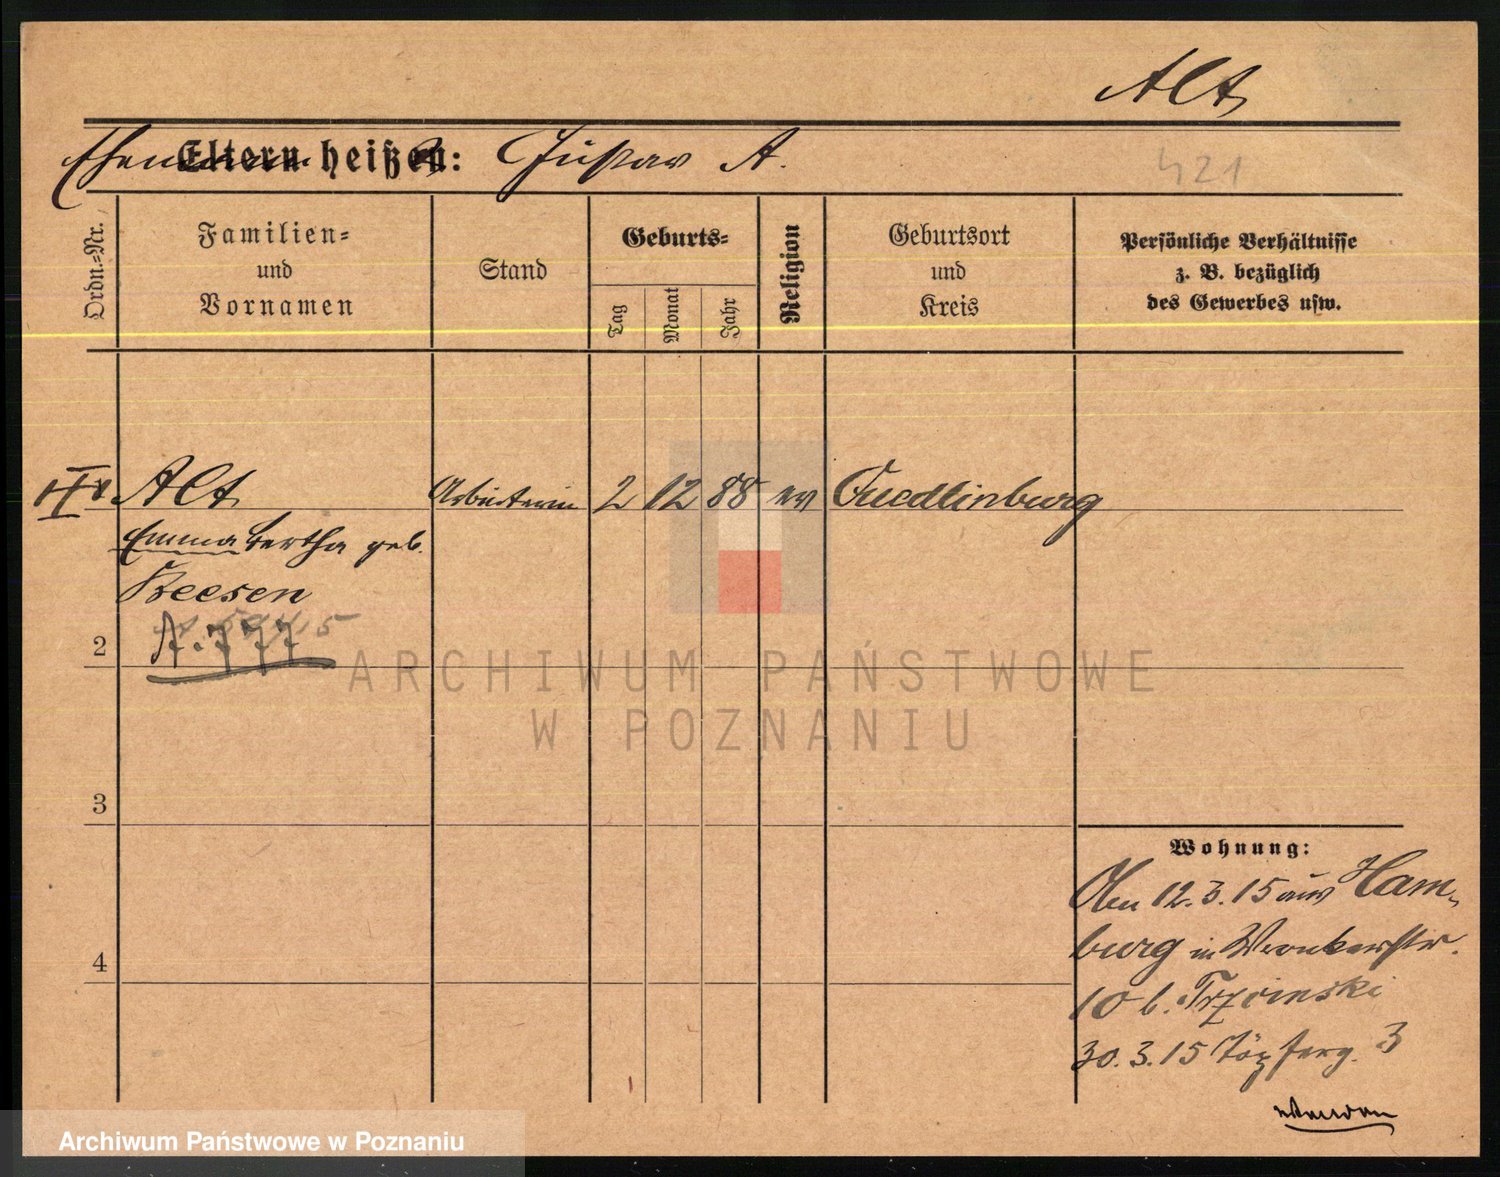 Alt
Ehemann
Eltern heißen: Gustav A.
421
Ordn.-Nr.
Familien-
und
Vornamen
Stand
Geburts-
Tag
Monat
Jahr
Religion
Geburtsort
und
Kreis
Persönliche Verhältnisse
z. B. bezüglich
des Gewerbes usw.
Alt Arbeiterin 2 12 88 ev Quedlinburg
Emma Bertha geb.
Beesen
A. 777
2
3
4
ARCHIWUM PAŃSTWOWE
W POZNANIU
Wohnung:
12.3.15 aus Ham-
burg in Wronkerstr.
10 b. Trzcinski
30.3.15 Töpferg. 3
wenden
Archiwum Państwowe w Poznaniu